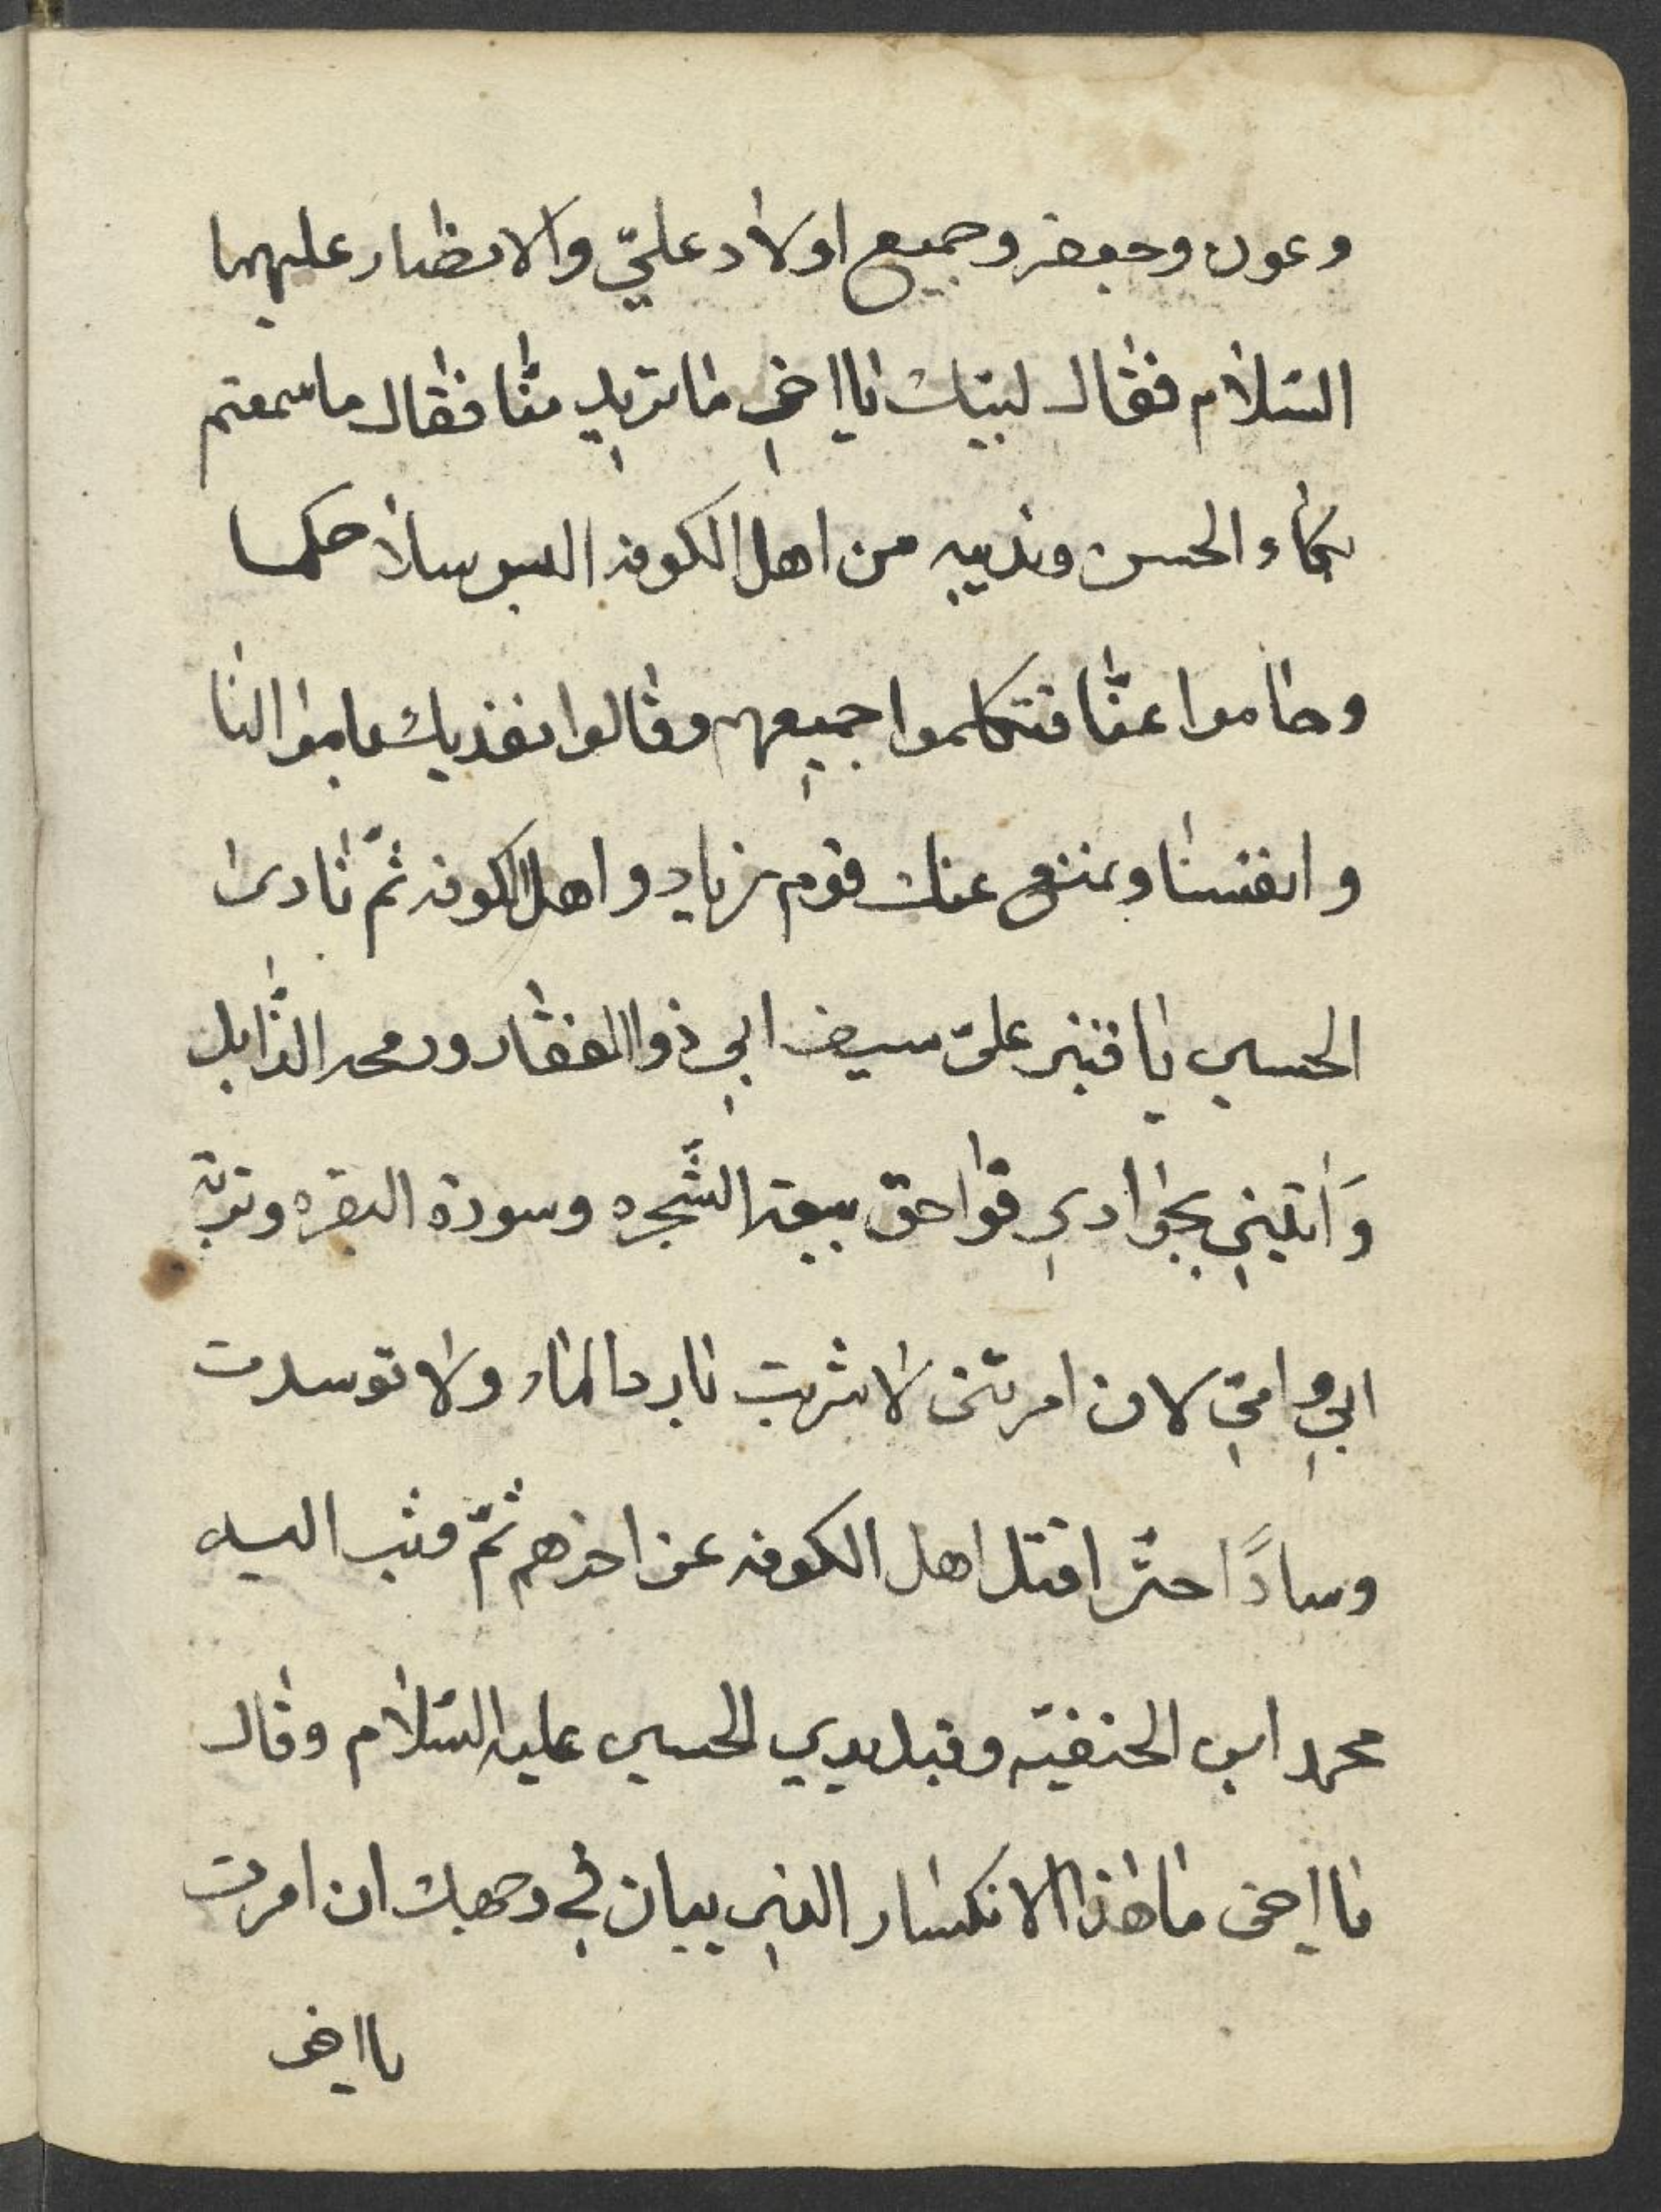 وعون وجعفر وجميع اولاد عليّ والانصار عليهما
السّلام فقال لبيّك يا اخي ما تريد منّا فقال ما سمعتم
بكاء الحسن وندبيه من اهل الكوفه البسو سلاحكما
وحاموا عنّا فتكلموا جميعهم وقالوا نفديك باموالنا
وانفسنا ونمنع عنك قوم زياد واهل الكوفه ثمّ نادى
الحسين يا قنبر عليّ سيف ابي ذوالفقار ورمحه الذّابل
وَاتيني بجوادي فواحق بيعة الشّجره وسورة البقره وتربة
ابي وامّي لان امرتني لا شربت بارد الماء ولا توسدت
وسادًا حتّى اقتل اهل الكوفه عن اخرهم ثمّ وثب اليه
محمد ابن الحنفيّه وقبل يدي الحسين عليه السّلام وقال
يا اخي ما هذا الانكسار الذي يبان في وجهك ان امرت
يا اخي